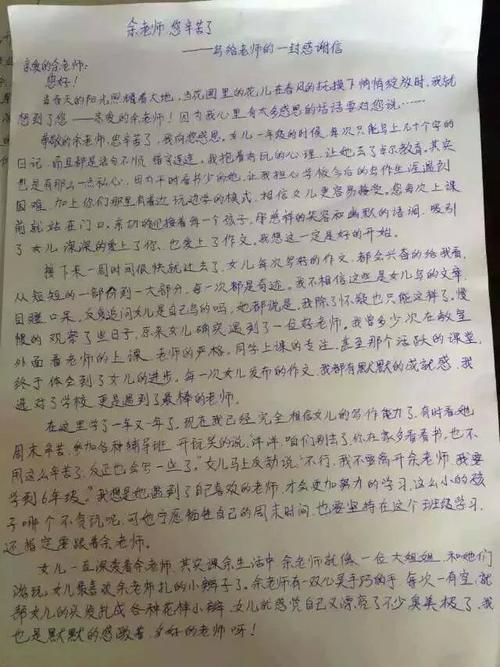 余老师 您辛苦了
——写给老师的一封感谢信
亲爱的余老师:
您好!
当春天的阳光照耀着大地,当花园里的花儿在春风的抚摸下悄悄绽放时,我就
想到了您——亲爱的余老师!因为我心里有太多感恩的话语要对您说……
尊敬的余老师,您辛苦了,我向您感恩。女儿一年级的时候,每次只能写上几十个字的
日记,而且都是语句不顺,错字连连,我抱着玩玩的心理,让她去了卓尔教育,其实
也是有那么一点私心,因为平时看书少的她,让我担心学校今后的写作生涯遇到
困难,加上你们那里有着边玩边学的模式,相信女儿更容易接受。您每次上课
前就站在门口,亲切的迎接着每一个孩子,那慈祥的笑容和幽默的语调,吸引
了女儿,深深的爱上了你,也爱上了作文。我想这一定是好的开始。
接下来一周时间很快就过去了,女儿每次写好的作文,都会兴奋的给我看,
从短短的一部份到一大部分,每一次都是奇迹。我不相信这些是女儿写的文章,
目瞪口呆,反复追问女儿是自己写的吗,她都说是,我除了怀疑也只能这样了,慢
慢的观察了些日子,原来女儿确实遇到了一位好老师。我曾多少次在教室
外面看老师的上课,老师的严格,同学上课的专注,甚至那个活跃的课堂,
终于体会到了女儿的进步。每一次女儿发布的作文,我都有默默的成就感,我
选对了学校,更是遇到了最棒的老师。
在这里学了一年又一年了,现在我已经完全相信女儿的写作能力了,有时看她
周末辛苦,参加各种辅导班,开玩笑的说,洋洋,咱们别去了,你在家多看看书,也不
用这么辛苦了,反正也会写一些了,"女儿马上反驳说,"不行,我不要离开余老师,我要
学到6年级。"我想是她遇到了自己喜欢的老师,才会更加努力的学习,这么小的孩
子哪个不贪玩呢,可她宁愿牺牲自己的周末时间,也要坚持在这个班级学习,
还指定要跟着余老师。
女儿一直深爱着余老师,其实课余生活中,余老师就像一位大姐姐,和她们
游玩,女儿最喜欢余老师扎的小辫子了。余老师有一双心灵手巧的手,每次一有空,就
帮女儿的头发扎成各种花样小辫,女儿就感觉自己又漂亮了不少,臭美极了,我
也是默默的感激着,多好的老师呀!